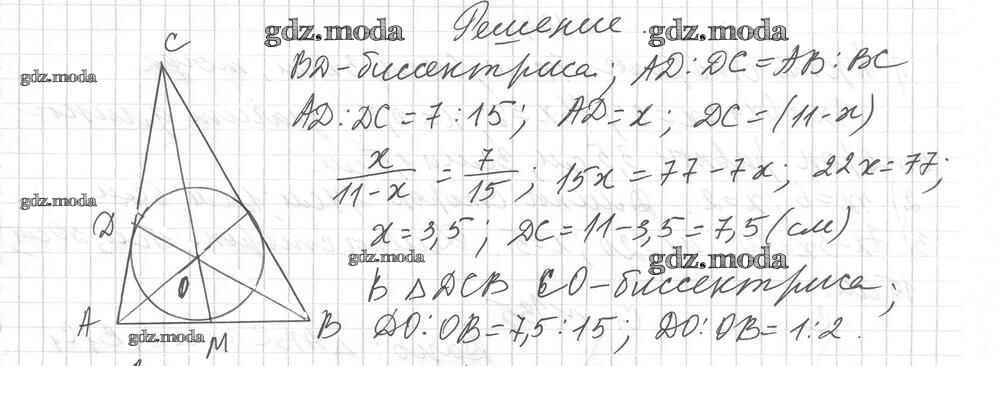 Решение.
BD-биссектриса; AD:DC=AB:BC
AD:DC=7:15; AD=x; DC=(11-x)
x/(11-x) = 7/15; 15x=77-7x; 22x=77;
x=3,5; DC=11-3,5=7,5(см)
В △DCB CO-биссектриса;
DO:OB=7,5:15; DO:OB=1:2.
C
D
O
A
M
B
gdz.moda
gdz.moda
gdz.moda
gdz.moda
gdz.moda
gdz.moda
gdz.moda